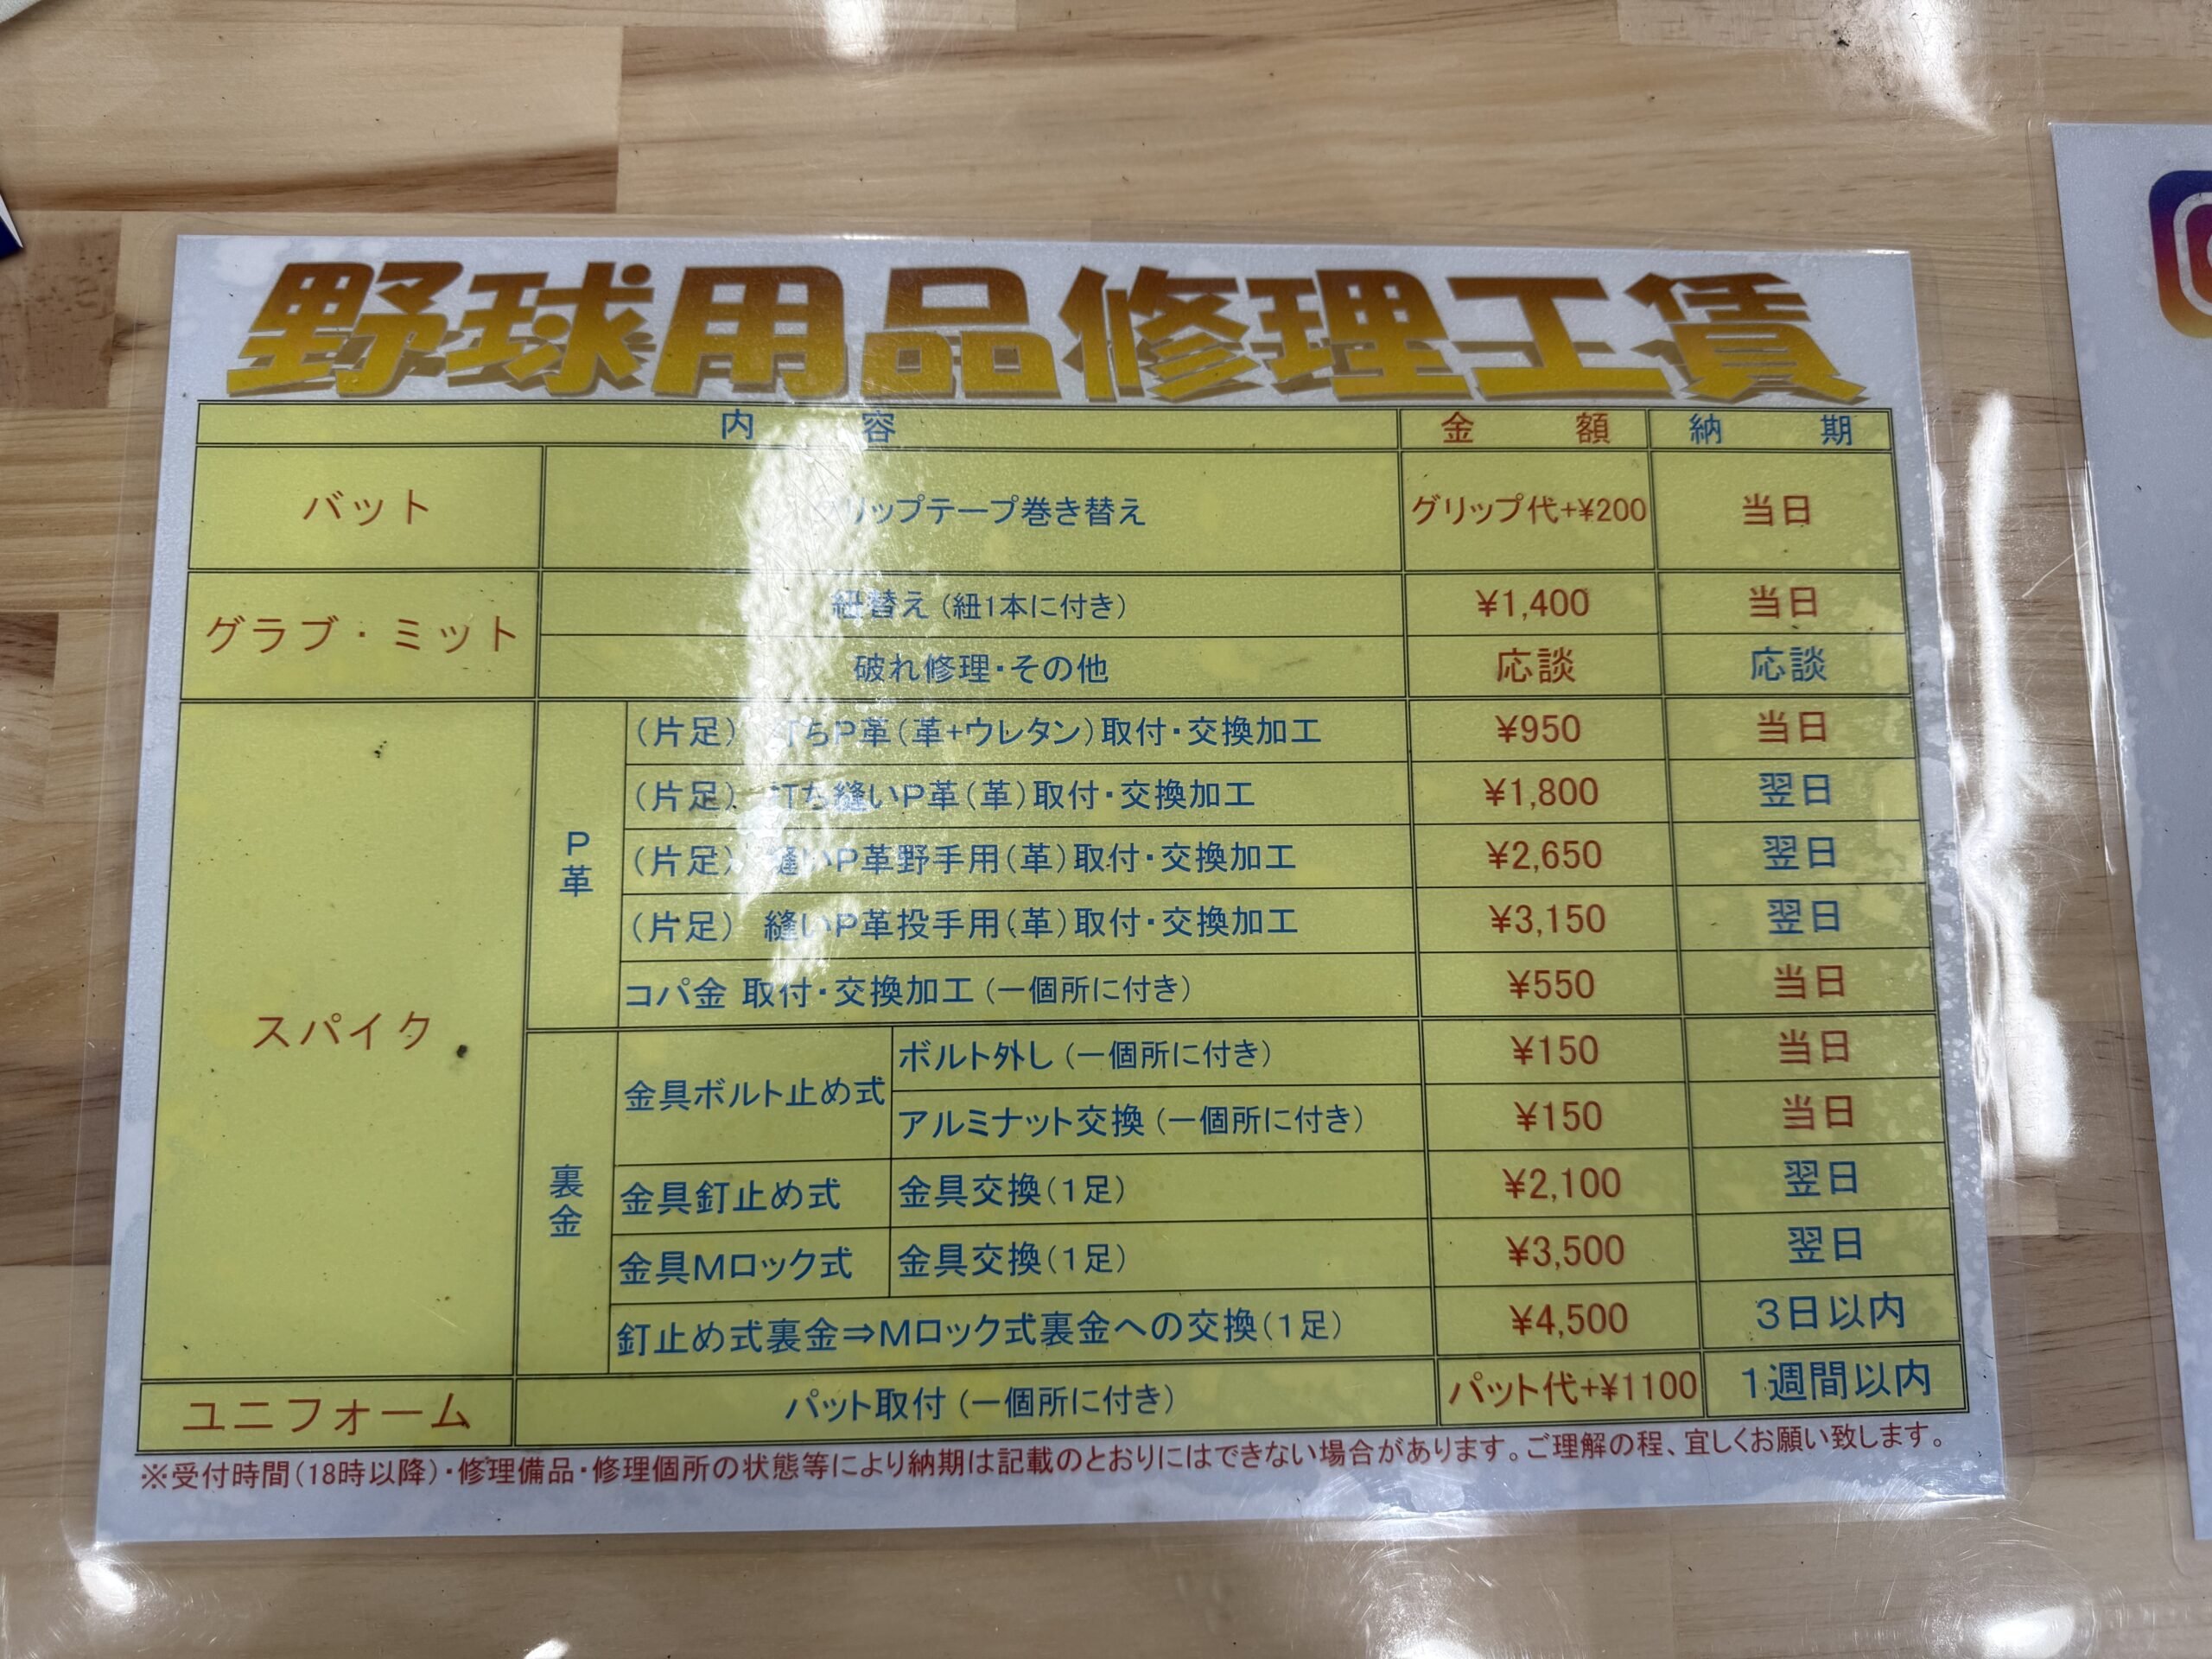 野球用品修理工賃
内容 金額 納期
バット リップテープ巻き替え グリップ代+¥200 当日
グラブ・ミット 紐替え(紐1本に付き) ¥1,400 当日
破れ修理・その他 応談 応談
スパイク
P革
(片足) 打ちP革(革+ウレタン)取付・交換加工 ¥950 当日
(片足) 打ち縫いP革(革)取付・交換加工 ¥1,800 翌日
(片足) 縫いP革野手用(革)取付・交換加工 ¥2,650 翌日
(片足) 縫いP革投手用(革)取付・交換加工 ¥3,150 翌日
コパ金 取付・交換加工(一個所に付き) ¥550 当日
裏金
金具ボルト止め式 ボルト外し(一個所に付き) ¥150 当日
アルミナット交換(一個所に付き) ¥150 当日
金具釘止め式 金具交換(1足) ¥2,100 翌日
金具Mロック式 金具交換(1足) ¥3,500 翌日
釘止め式裏金⇒Mロック式裏金への交換(1足) ¥4,500 3日以内
ユニフォーム パット取付(一個所に付き) パット代+¥1100 1週間以内
※受付時間(18時以降)・修理備品・修理個所の状態等により納期は記載のとおりにはできない場合があります。ご理解の程、宜しくお願い致します。